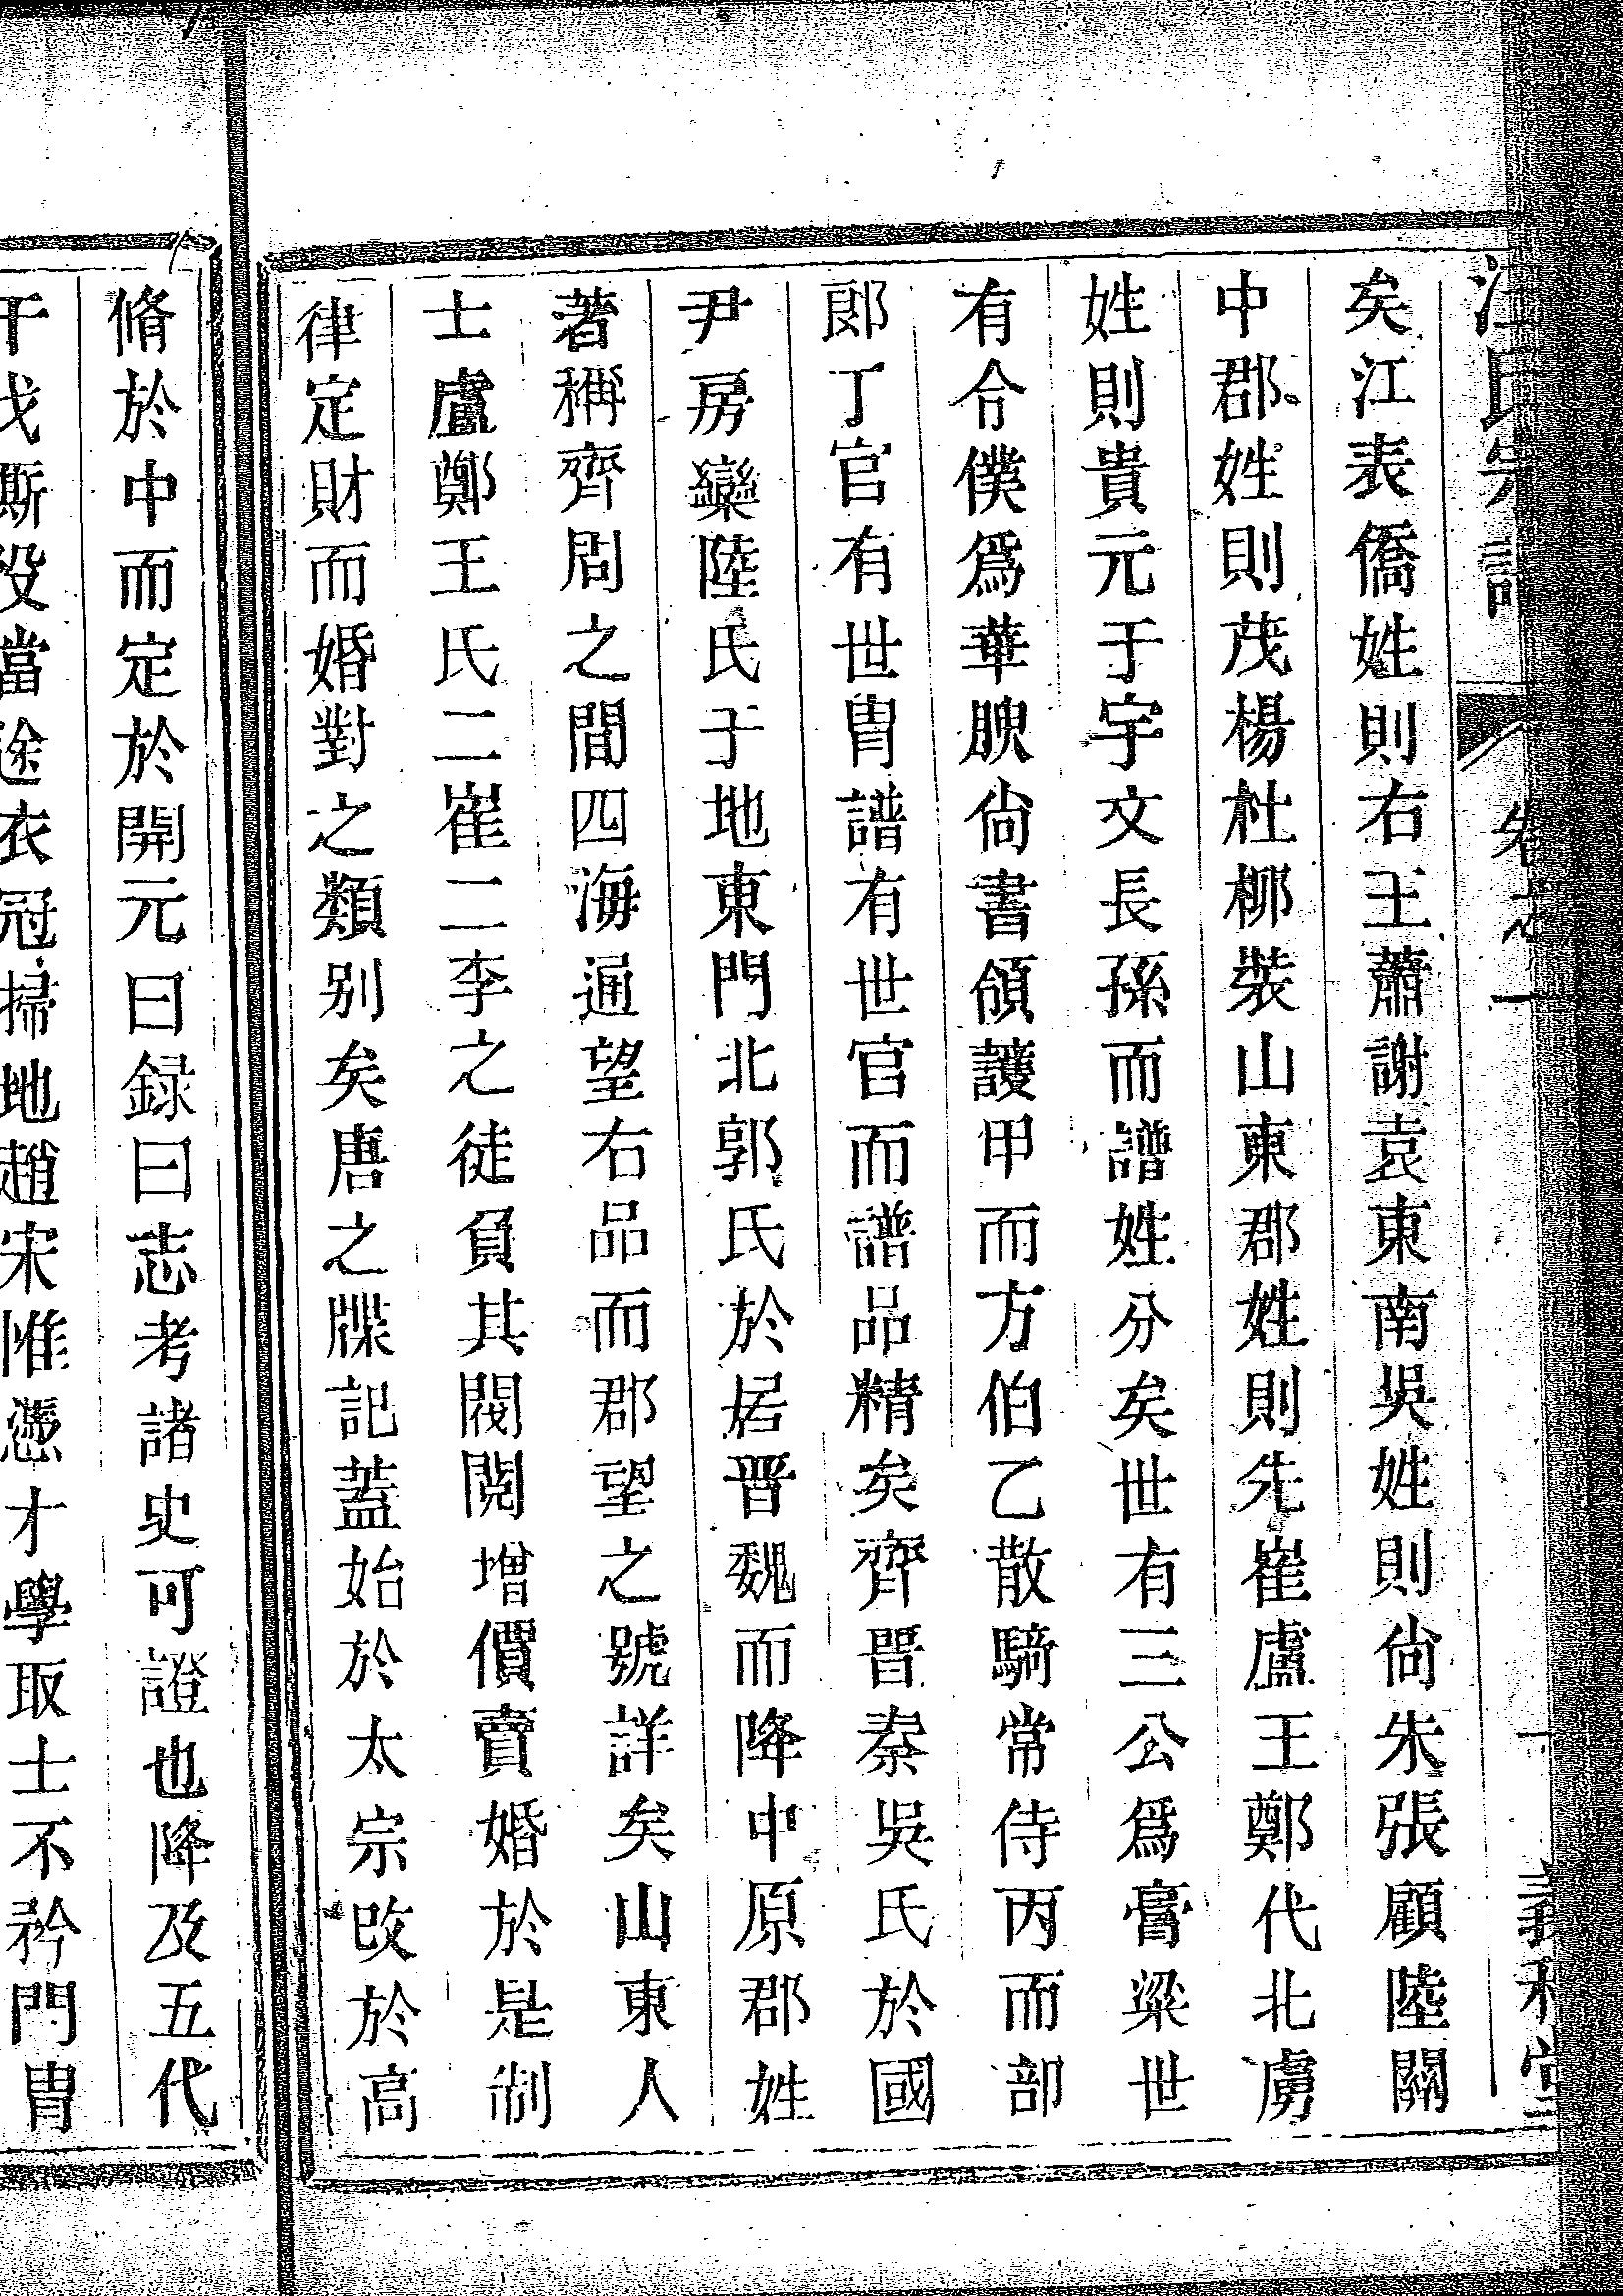 氏宗譜 卷之一
矣江表僑姓則右王蕭謝袁東南吳姓則尚朱張顧陸關
中郡姓則茂楊杜柳裴山東郡姓則先崔盧王鄭代北虜
姓則貴元于宇文長孫而譜姓分矣世有三公爲膏粱世
有令僕爲華腴尚書領護甲而方伯乙散騎常侍丙而部
郎丁官有世胄譜有世官而譜品精矣齊晋秦吳氏於國
尹房欒陸氏于地東門北郭氏於居晉魏而降中原郡姓
著稱齊周之間四海通望右品而郡望之號詳矣山東人
士盧鄭王氏二崔二李之徒負其閥閱增價賣婚於是制
律定財而婚對之類别矣唐之牒記蓋始於太宗改於高
脩於中而定於開元曰録曰志考諸史可證也降及五代
干戈斯没當途衣冠掃地趙宋惟憑才學取士不矜門胄